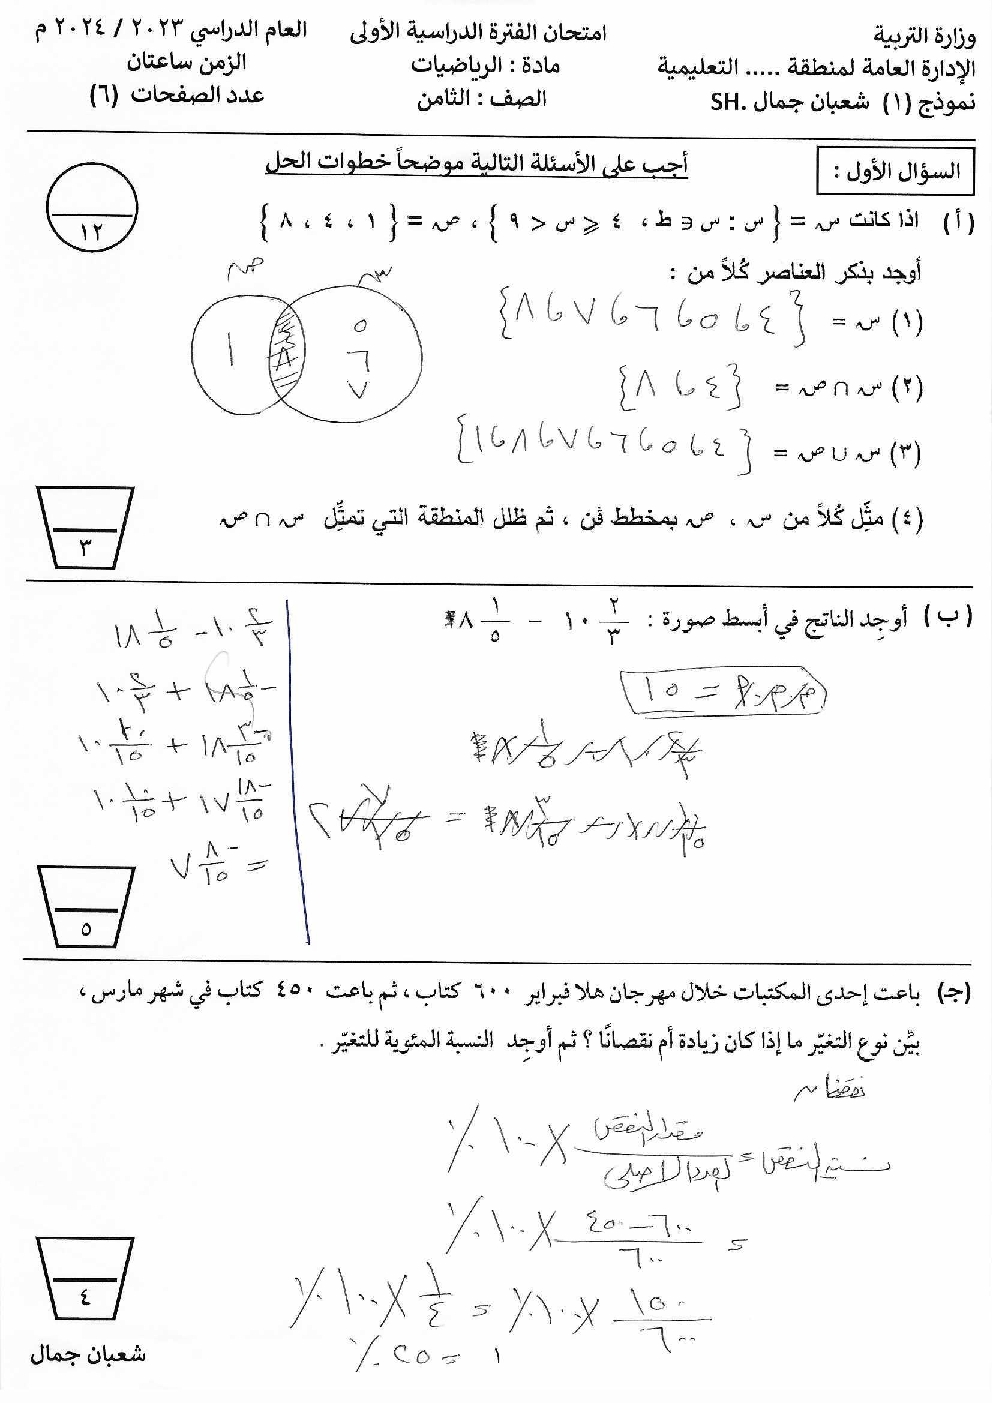 وزارة التربية امتحان الفترة الدراسية الأولى العام الدراسي ٢٠٢٣ / ٢٠٢٤ م
الإدارة العامة لمنطقة ..... التعليمية مادة : الرياضيات الزمن ساعتان
نموذج (١) شعبان جمال .SH الصف : الثامن عدد الصفحات (٦)
السؤال الأول : أجب على الأسئلة التالية موضحاً خطوات الحل
١٢
(أ) اذا كانت س = {س : س ∋ ط ، ٤ ⩽ س < ٩} ، ص = {١ ، ٤ ، ٨}
أوجد بذكر العناصر كُلاً من :
ص س
(١) س = {٤ ، ٥ ، ٦ ، ٧ ، ٨}
١ ٥ ٦ ٧
(٢) س ∩ ص = {٤ ، ٨}
(٣) س ∪ ص = {٤ ، ٥ ، ٦ ، ٧ ، ٨ ، ١}
(٤) مثِّل كُلاً من س ، ص بمخطط فن ، ثم ظلل المنطقة التي تمثِّل س ∩ ص
٣
(ب) أوجد الناتج في أبسط صورة : ١٠ ٢/٣ − ١٨ ١/٥
١٠ ٢/٣ − ١٨ ١/٥
م.م.م = ١٥
− ١٨ ١/٥ + ١٠ ٢/٣
− ١٨ ٣/١٥ + ١٠ ١٠/١٥
− ١٧ ١٨/١٥ + ١٠ ١٠/١٥
= − ٧ ٨/١٥
٥
(جـ) باعت إحدى المكتبات خلال مهرجان هلا فبراير ٦٠٠ كتاب ، ثم باعت ٤٥٠ كتاب في شهر مارس ،
بيِّن نوع التغيّر ما إذا كان زيادة أم نقصانًا ؟ ثم أوجِد النسبة المئوية للتغيّر .
نقصان
نسبة النقص = مقدار النقص / العدد الاصلي × ١٠٠ ٪
= ٦٠٠ − ٤٥٠ / ٦٠٠ × ١٠٠ ٪
١٥٠ / ٦٠٠ × ١٠٠ ٪ = ١/٤ × ١٠٠ ٪
= ٢٥ ٪
٤
شعبان جمال